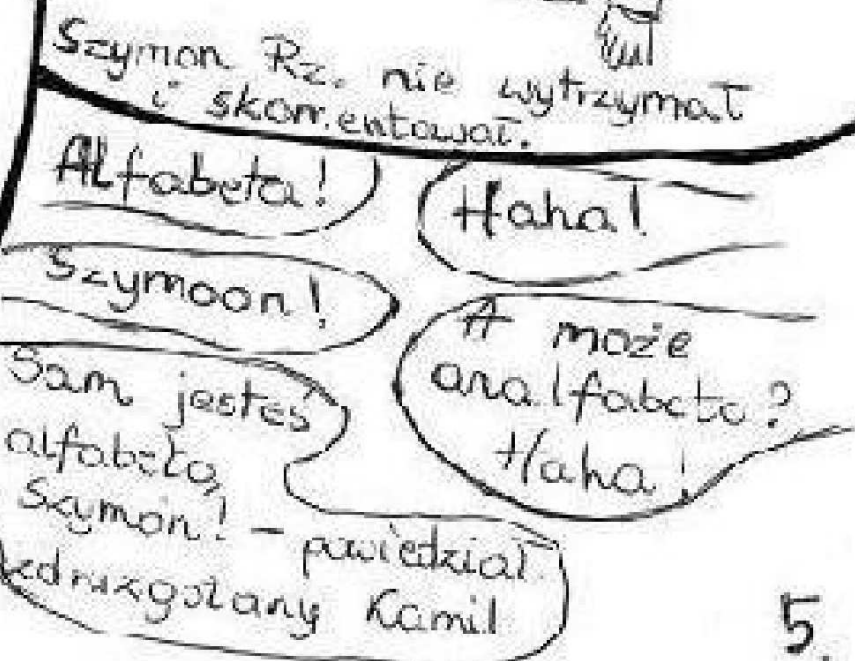 Szymon Rz. nie wytrzymał
i skomentował.
Alfabeta!
Haha!
Szymoon!
A może
analfabeta?
Haha!
Sam jesteś
alfabeta,
Szymon! – powiedział
zdruzgotany Kamil
5.